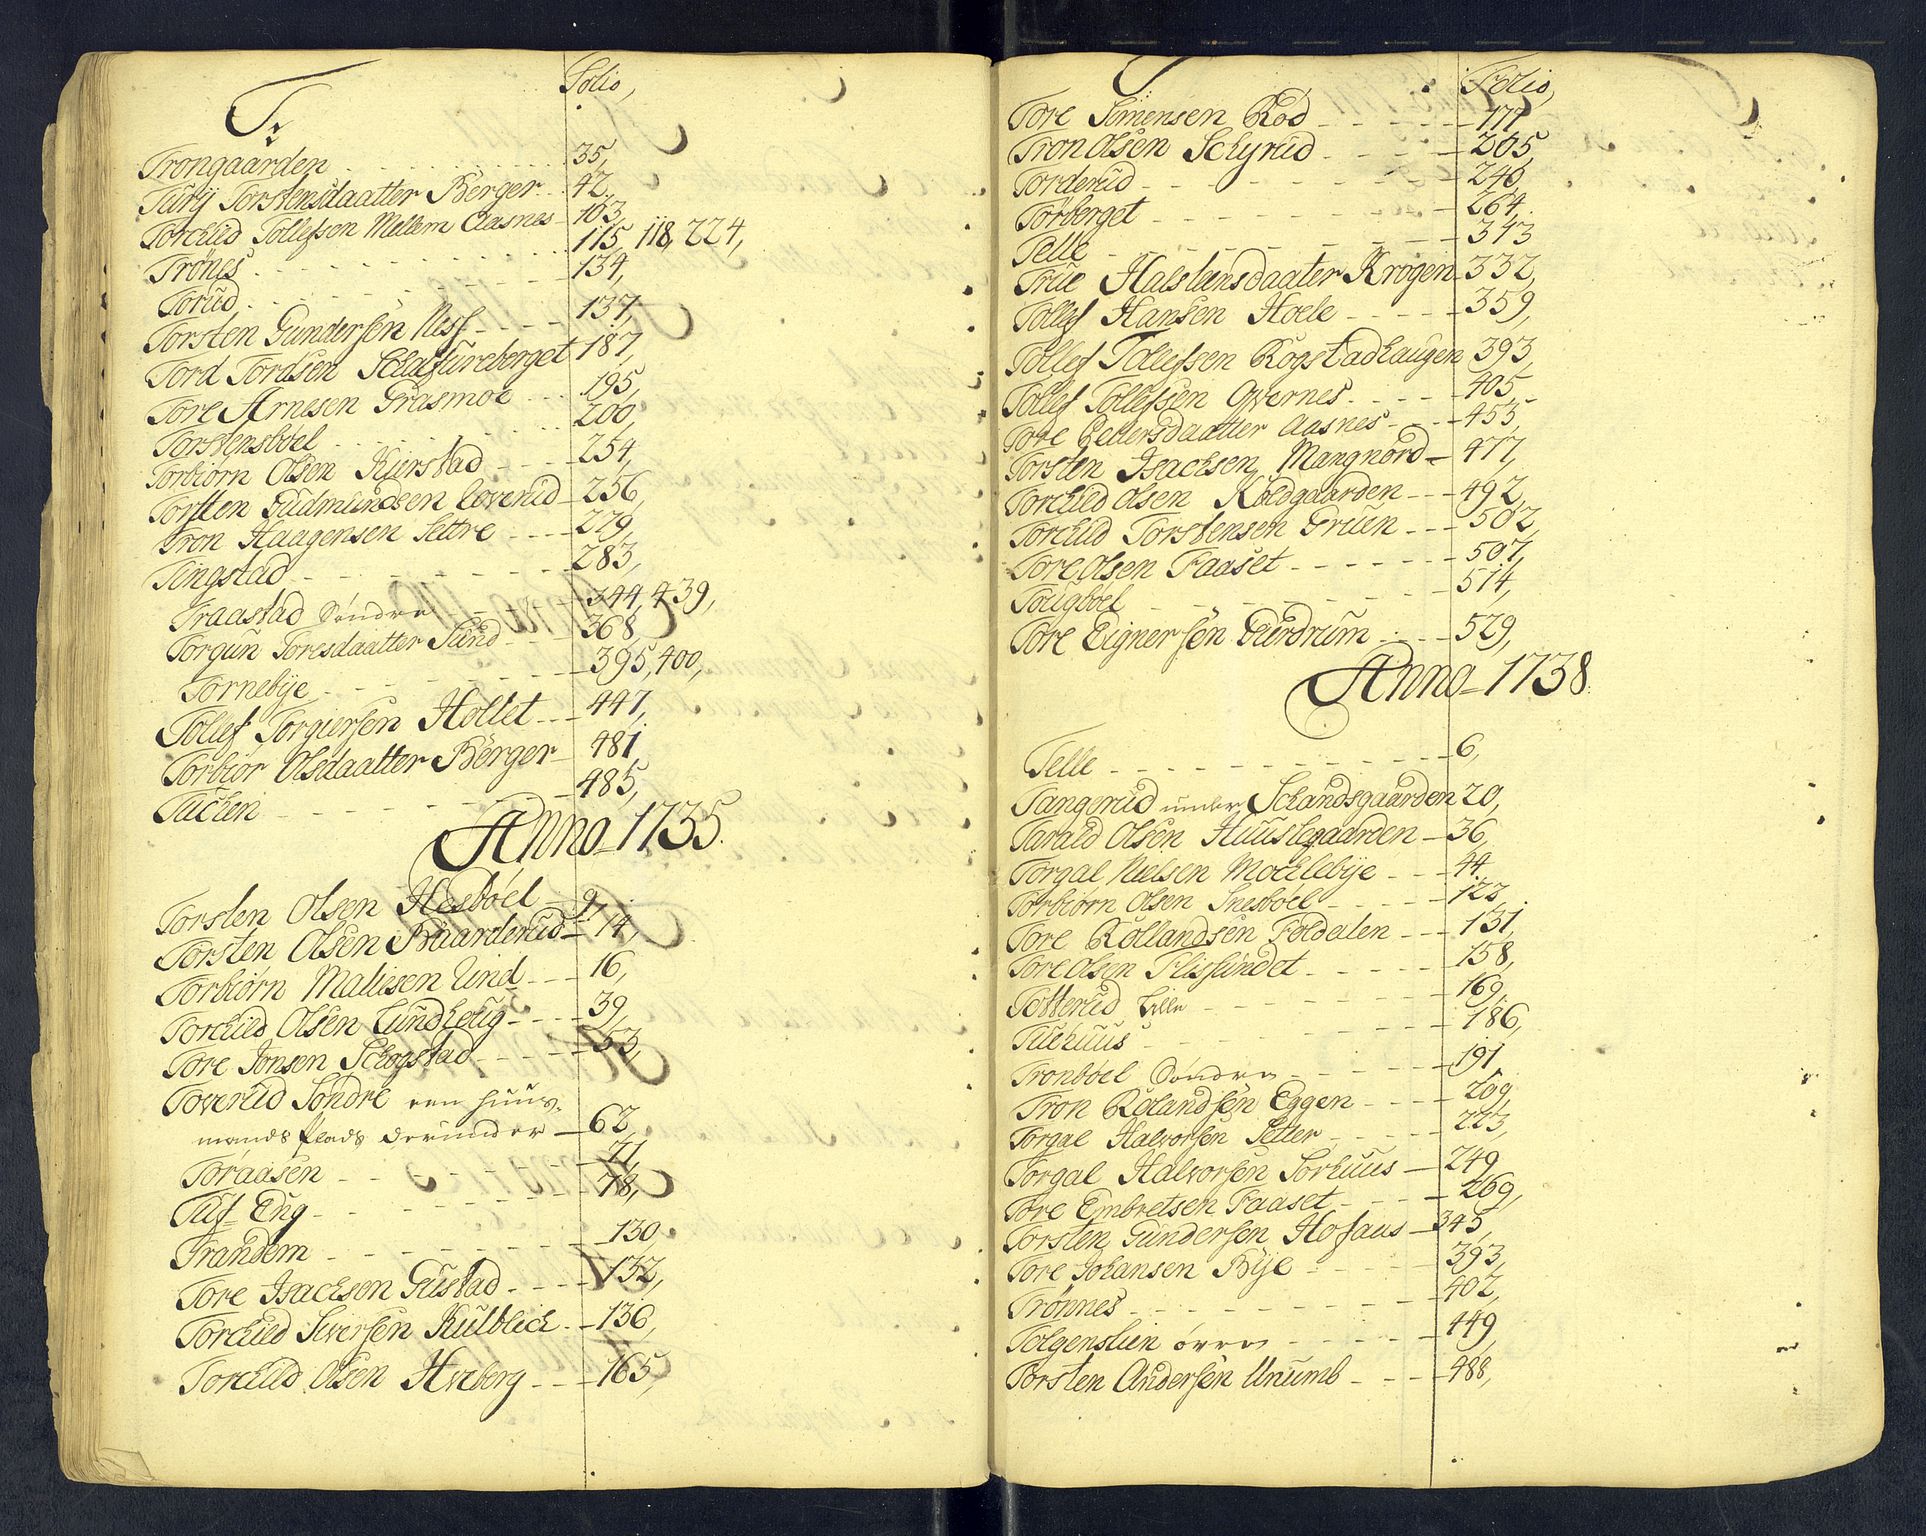 T.
Folio,
Trongaarden 35,
Turÿ Torstensdaatter Berger 42,
Torckild Tollefsen Mellem Aasnes 103,
Trönes 115, 118, 224,
Torud 134,
Torsten Gundersen Ness 137,
Tord Tordsen Schafureberget 187,
Tore Arnesen Grasmoe 195,
Torstensböel 200,
Torbiörn Olsen Kierstad 254,
Torsten Gudmundsen Loverud 256,
Tron Haagensen Settre 279,
Tingstad 283,
Traastad Söndre 344, 439,
Torgun Toresdaatter Sund 368,
Tornebÿe 395, 400,
Tollef Torgiersen Hollet 447,
Torbiör Olsdaatter Berger 481
Tuchen 485,
Anno 1735.
Torsten Olsen Hesböel 9,
Torsten Olsen Baarderud 14,
Torbiörn Matisen Lind 16,
Torckild Olsen Lundhoug 39,
Tore Jonsen Schogstad 53,
Toverud Söndre een huus-
mands plads derunder 62,
Toraasen 71,
Tuf Eng 78,
Trandem 130,
Tore Isachsen Gustad 132,
Torckild Siversen Kulblich 136,
Torckild Olsen Hveberg 165,
T
Folio,
Tore Simensen Rød 177
Tron Olsen Schÿrud 205,
Torderud 240,
Törberget 264,
Telle 313
True Halsteensdaater Krogen 332,
Tollef Hansen Hoele 359,
Tollef Tollefsen Rogstadhaugen 393,
Tollef Tollefsen Overnes 405,
Tore Pedersdaatter Aasnes 455,
Torsten Isachsen Mangnord 477,
Torckild Olsen Koldgaarden 492,
Torckild Torstensen Gruen 502,
Tore Olsen Faaset 507,
Tougböel 514,
Tore Eignersen Gierdrum 529,
Anno 1738.
Telle 6,
Tangerud under Schandsgaarden 20,
Tarald Olsen Huuslegaarden 36,
Torgal Nielsen Mochlebÿe 44,
Torbiörn Olsen Snesböel 122,
Tore Rollandsen Foldalen 131,
Tore Olsen Flisundet 158,
Totterud Lille 169,
Tuehuus 186,
Tronböel Söndre 191
Tron Rolandsen Eggen 209,
Torgal Halvorsen Setter 223,
Torgal Halvorsen Sorhuus 249,
Tore Embretsen Faaset 269,
Torsten Gundersen Hofaus 345,
Tore Johansen Bÿe 393,
Trönnes 402,
Tolgenslien övre 449,
Torsten Andersen Unumb 488,